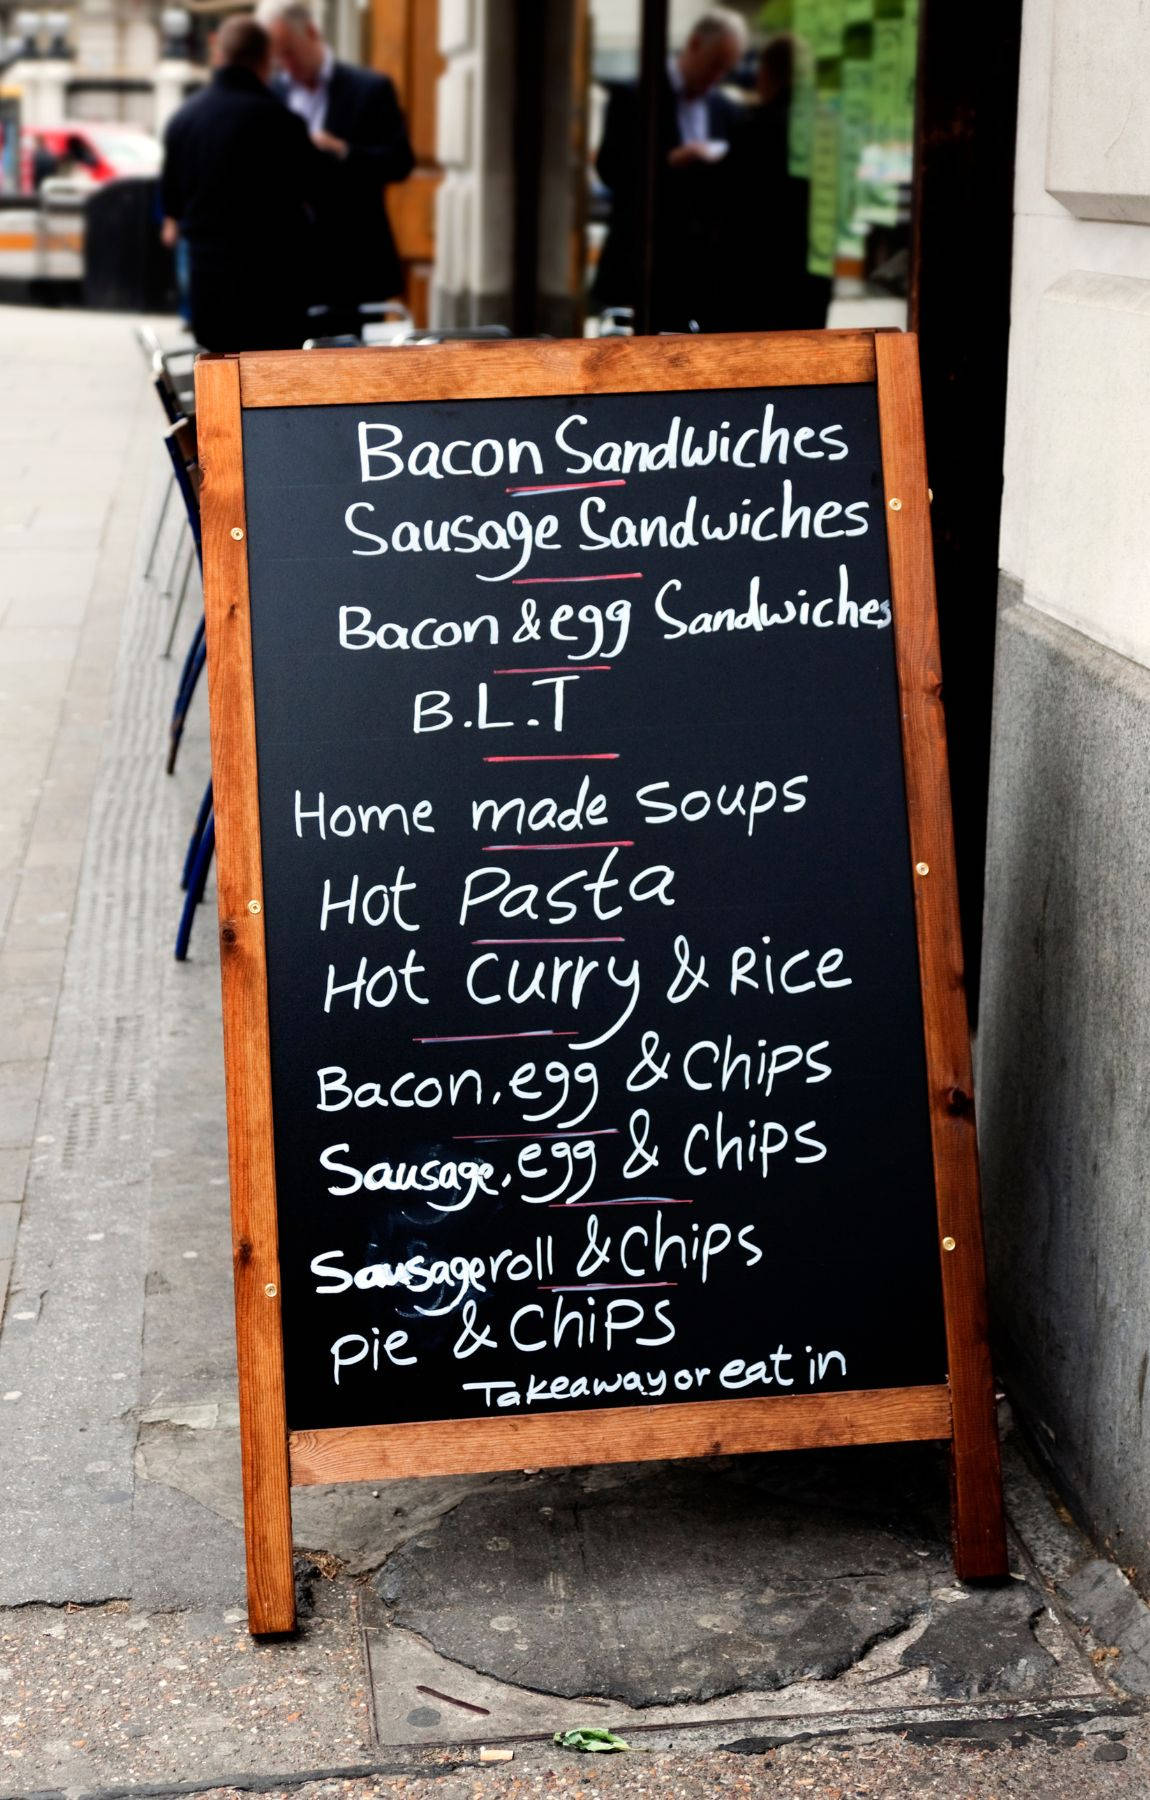 Bacon Sandwiches
Sausage Sandwiches
Bacon & egg Sandwiches
B.L.T
Home made Soups
Hot Pasta
Hot Curry & Rice
Bacon, egg & Chips
Sausage, egg & Chips
Sausage roll & Chips
pie & Chips
Takeaway or eat in